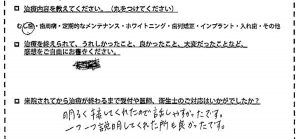 □ 治療内容を教えてください。（丸をつけてください）
むし歯・歯周病・定期的なメンテナンス・ホワイトニング・歯列矯正・インプラント・入れ歯・その他
□ 治療を終えられて、うれしかったこと、良かったこと、大変だったことなど、
感想をご自由にお書きください。
□ 来院されてから治療が終わるまで受付や医師、衛生士のご対応はいかがでしたか？
明るく接してくれたので話しやすかったです。
一つ一つ説明してくれた所も良かったです。